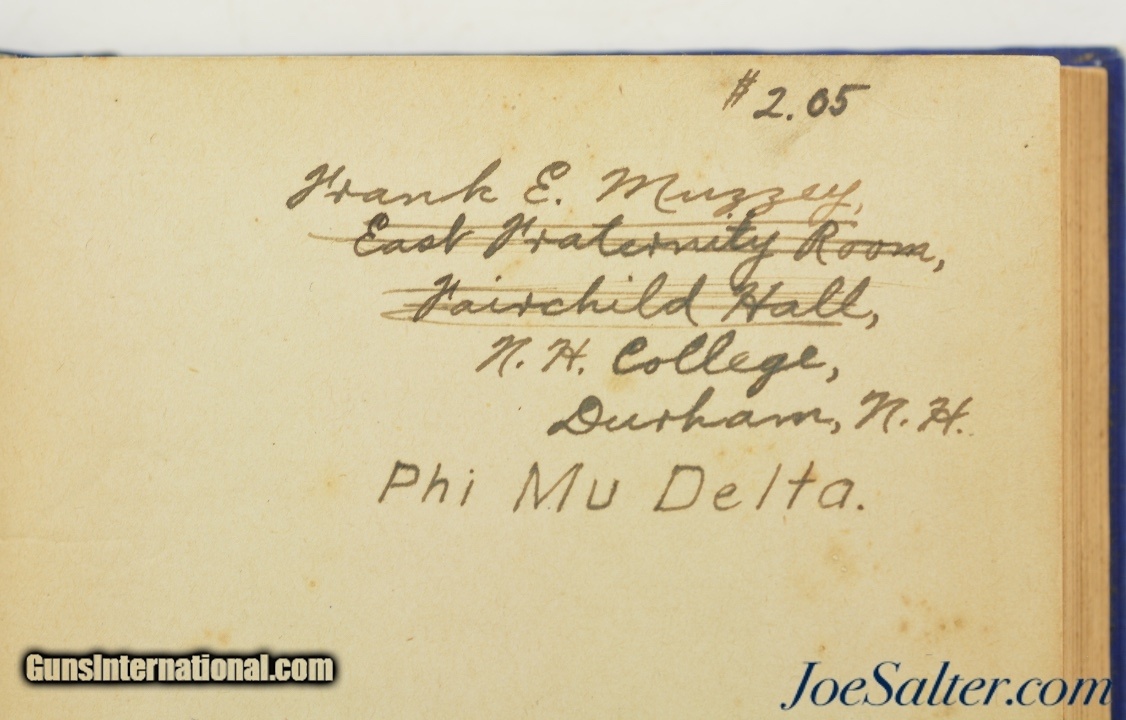 #2.05
Frank E. Muzzey,
East Fraternity Room,
Fairchild Hall,
N. H. College,
Durham, N. H.
Phi Mu Delta.
GunsInternational.com
JoeSalter.com